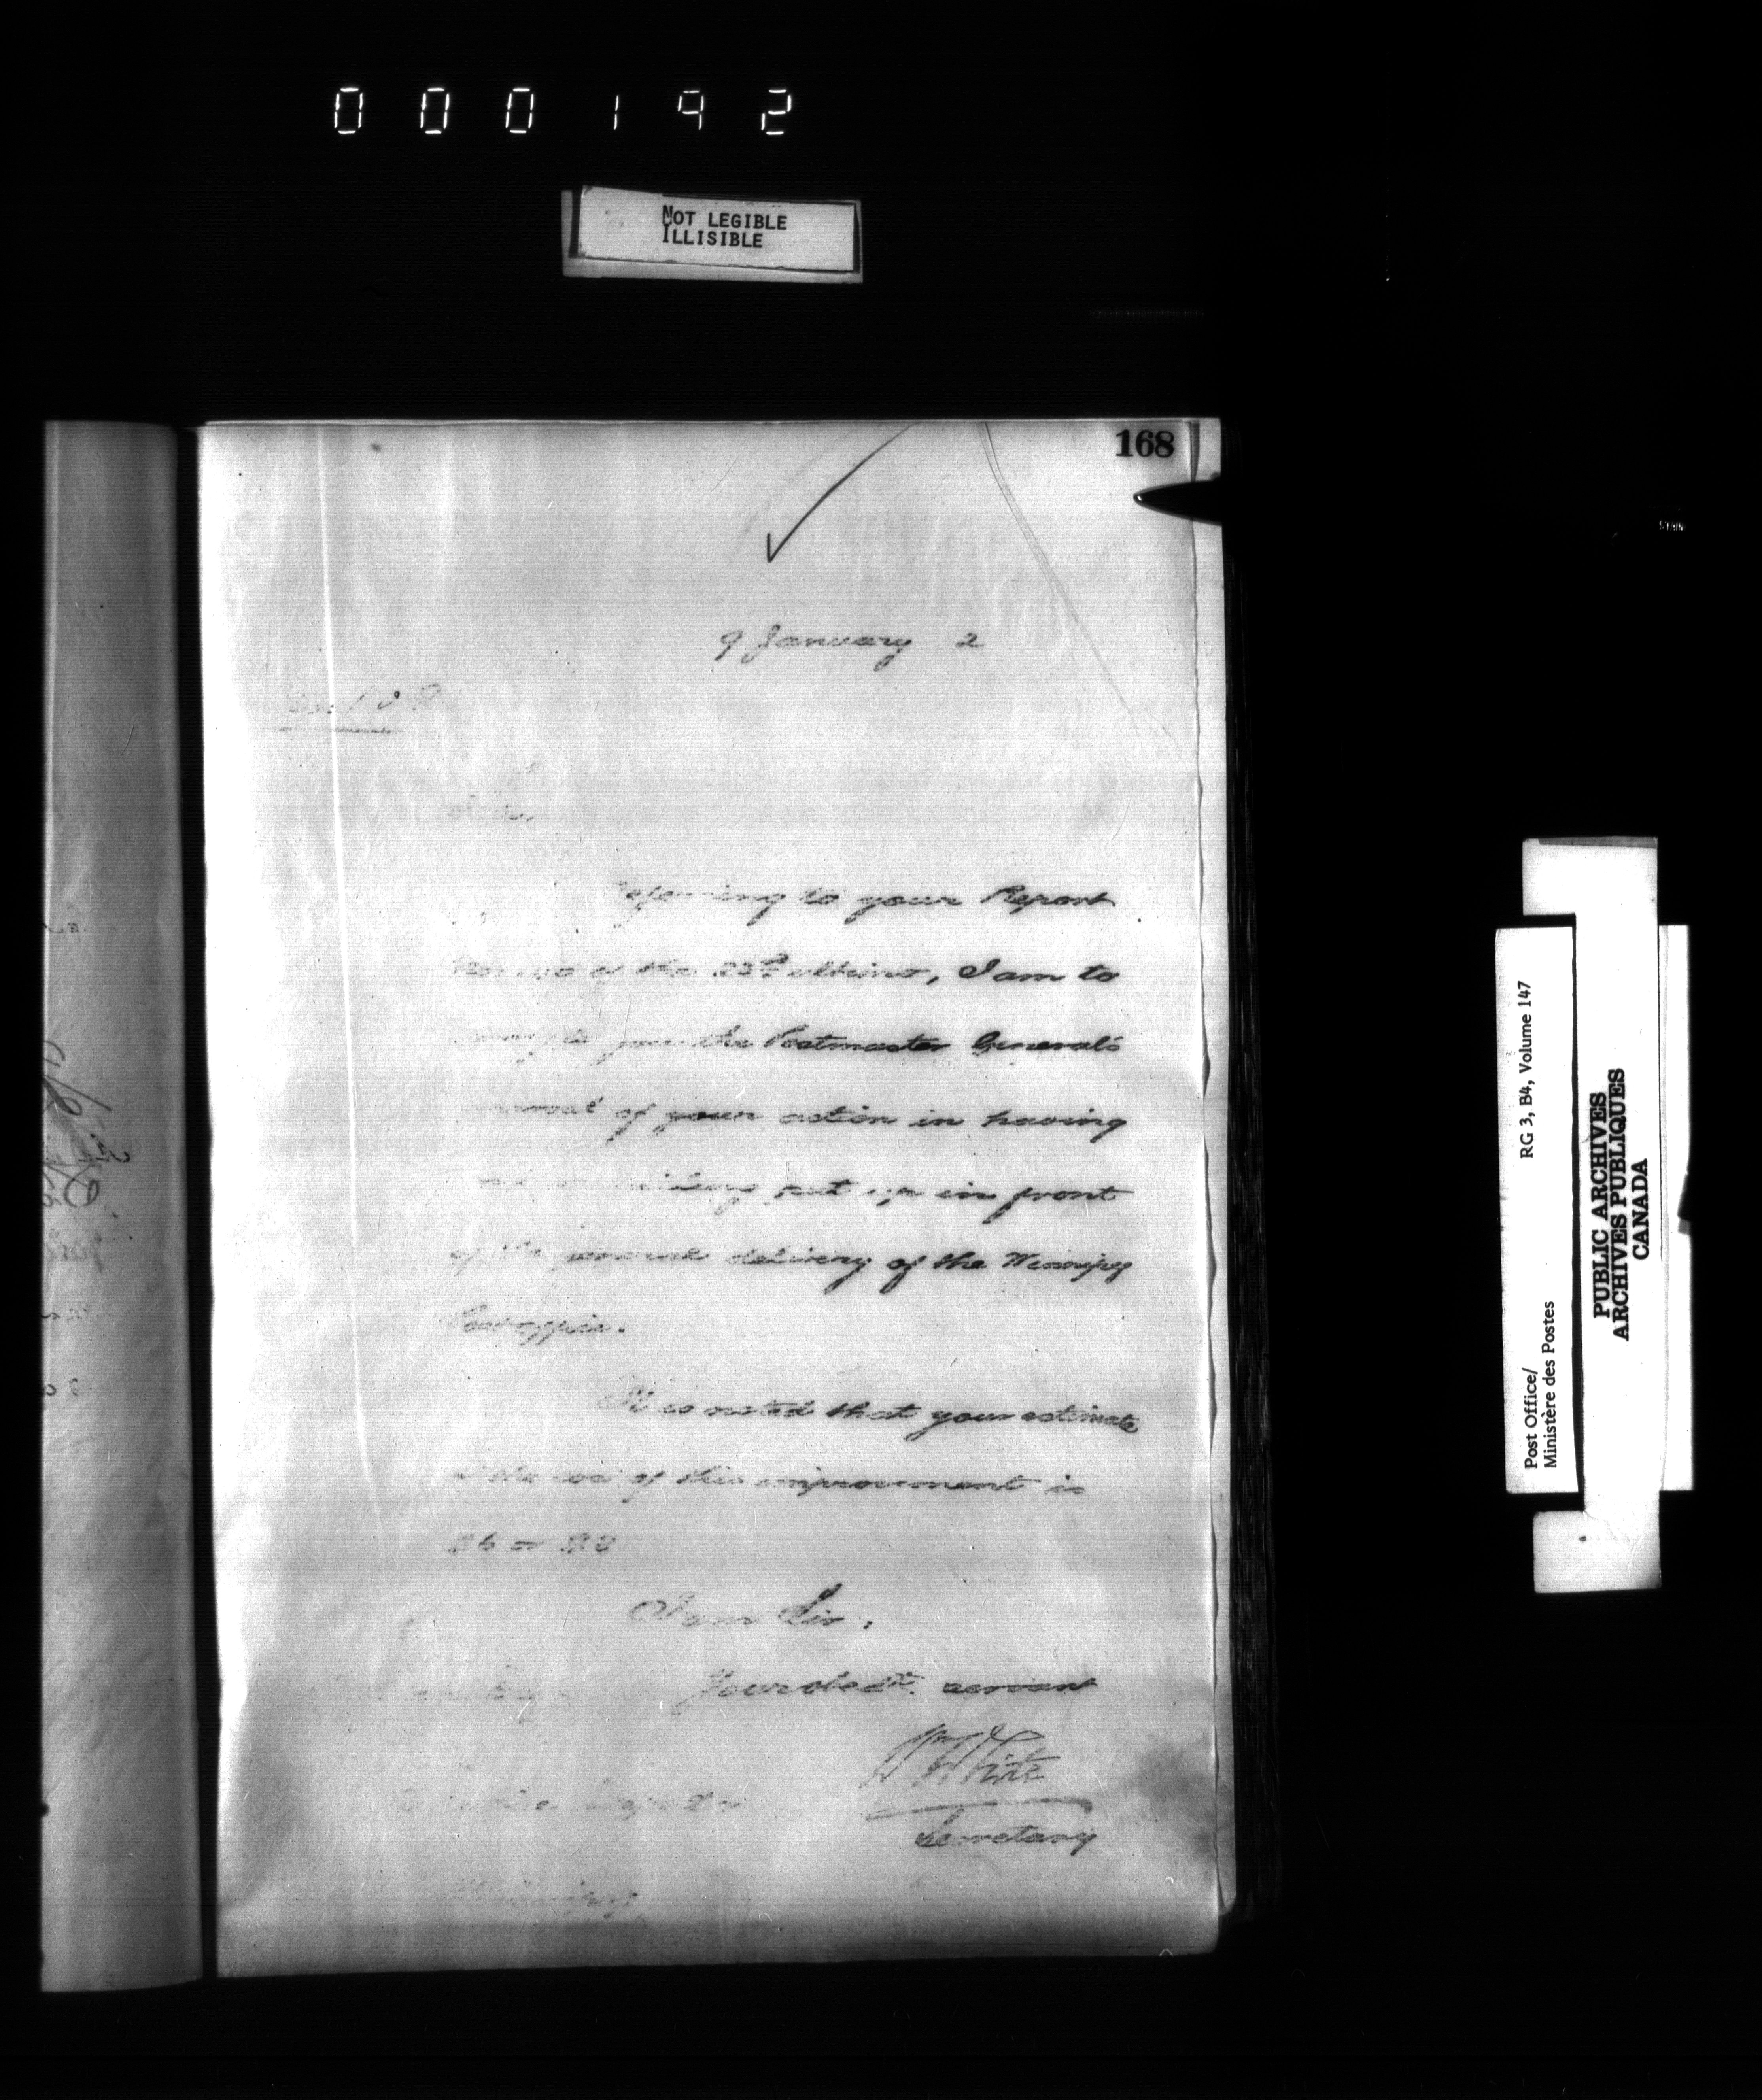 000192
NOT LEGIBLE
ILLISIBLE
168
9 January 2
Sir,
Referring to your Report
of the 23rd ultimo, I am to
convey to you the Postmaster General's
approval of your action in having
put up in front
of the general delivery of the Winnipeg
Post office.
It is noted that your estimate
of the cost of this improvement is
$6 or $8
I am Sir,
Your obedt. servant
Wm White
Secretary
Post Office Inspector
Winnipeg
RG 3, B4, Volume 147
Post Office/
Ministère des Postes
PUBLIC ARCHIVES
ARCHIVES PUBLIQUES
CANADA